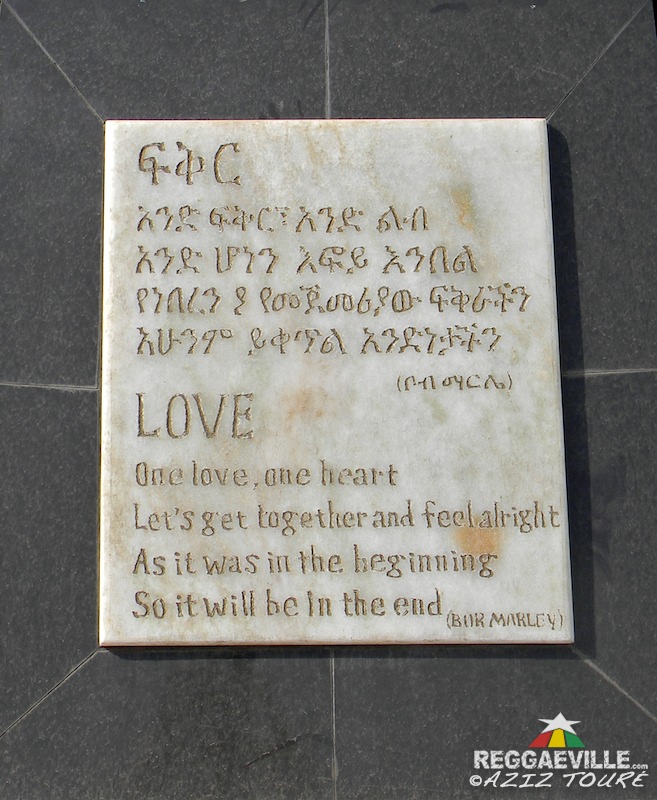 ፍቅር
አንድ ፍቅር፣ አንድ ልብ
አንድ ሆነን እፎይ እንበል
የነበረን ያ የመጀመሪያው ፍቅራችን
አሁንም ይቀጥል አንድነታችን
(ቦብ ማርሌ)
LOVE
One love, one heart
Let's get together and feel alright
As it was in the beginning
So it will be in the end (BOB MARLEY)
REGGAEVILLE.com
©AZIZ TOURÉ